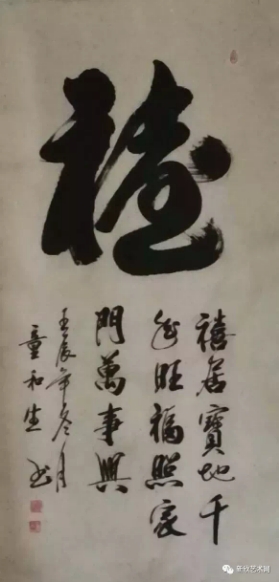 禧
禧居寶地千
年旺福照家
門萬事興
壬辰年冬月
童和生书
艺术网